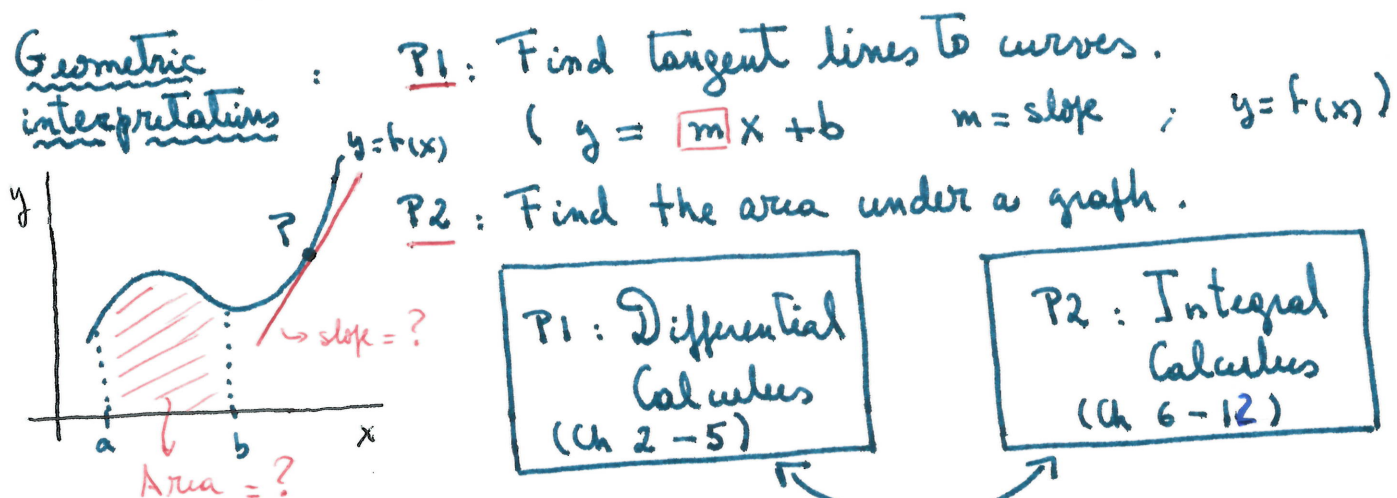 Geometric
interpretations : P1: Find tangent lines to curves.
( y = m x + b m = slope ; y = f(x) )
P2: Find the area under a graph.
y
y = f(x)
P
→ slope = ?
a
b
x
Area = ?
P1: Differential
Calculus
(Ch 2 - 5)
P2: Integral
Calculus
(Ch 6 - 12)